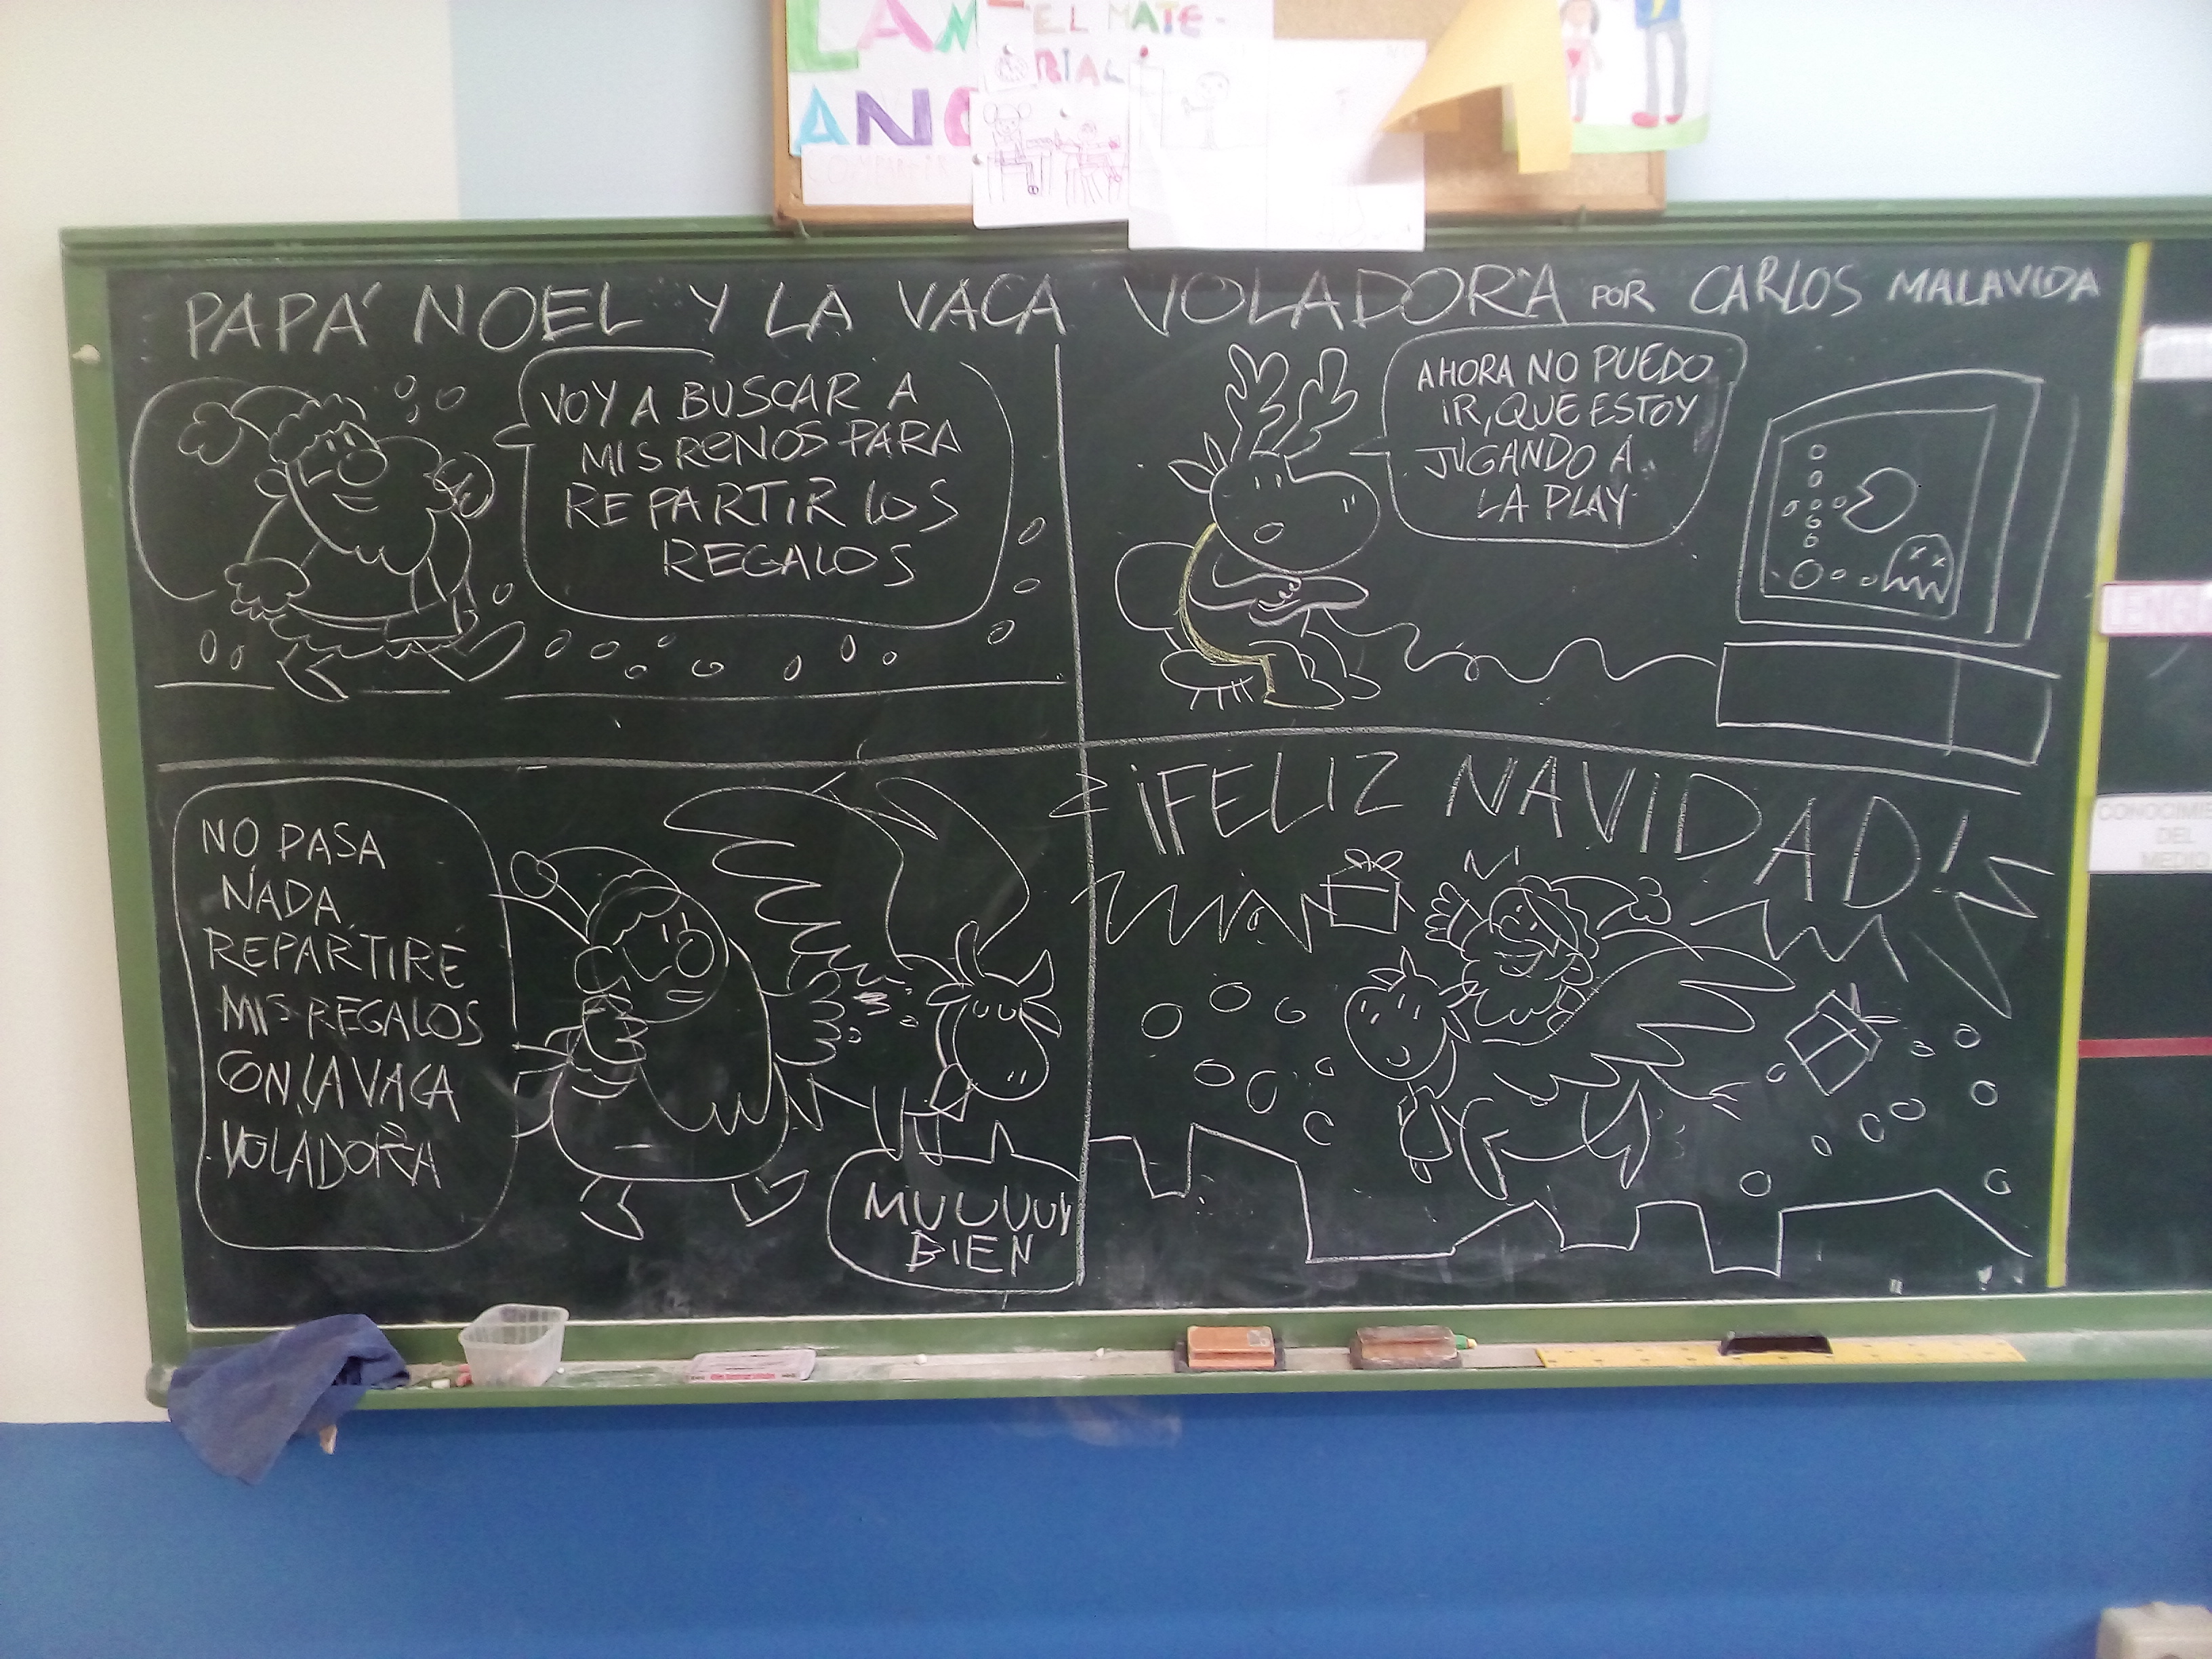 EL MATE-
RIAL
PAPÁ NOEL Y LA VACA VOLADORA POR CARLOS MALAVIDA
VOY A BUSCAR A
MIS RENOS PARA
REPARTIR LOS
REGALOS
AHORA NO PUEDO
IR, QUE ESTOY
JUGANDO A
LA PLAY
NO PASA
NADA,
REPARTIRÉ
MIS REGALOS
CON LA VACA
VOLADORA
MUUUUY
BIEN
¡FELIZ NAVIDAD!
DEL
MEDIO